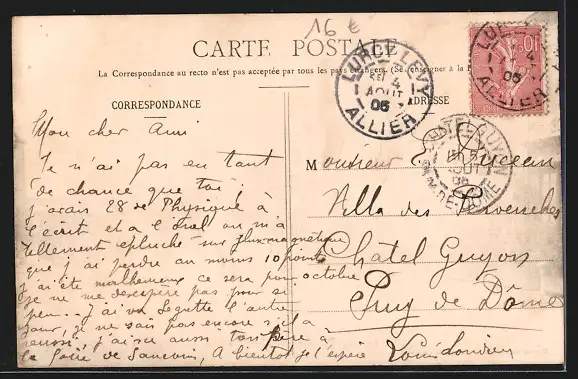 16 €
CARTE POSTALE
La Correspondance au recto n'est pas acceptée par tous les pays étrangers. (Se renseigner à la
CORRESPONDANCE
ADRESSE
LURCY-LEVY
4
AOUT
05
ALLIER
10
PUY-DE-DOME
Mon cher Ami
Je n'ai pas eu tant
de chance que toi,
j'avais 28 de Physique à
l'écrit et à l'oral on m'a
tellement épluché sur flux magnétique
que j'ai perdu au moins 10 points
j'ai été malheureux ce sera pour octobre
je ne me désespère pas pour si
peu... J'ai vu Legutte l'autre
jour, je ne sais pas encore s'il a
réussi j'ai su aussi ton père à
la de Sancoin, A bientôt je l'espère
Monsieur
Villa des Pervenches
Châtel Guyon
Puy de Dôme